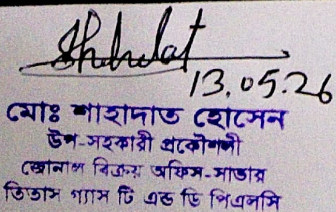 Shhdat
13.05.26
মোঃ শাহাদাত হোসেন
উপ-সহকারী প্রকৌশলী
জোনাল বিক্রয় অফিস-সাভার
তিতাস গ্যাস টি এন্ড ডি পিএলসি